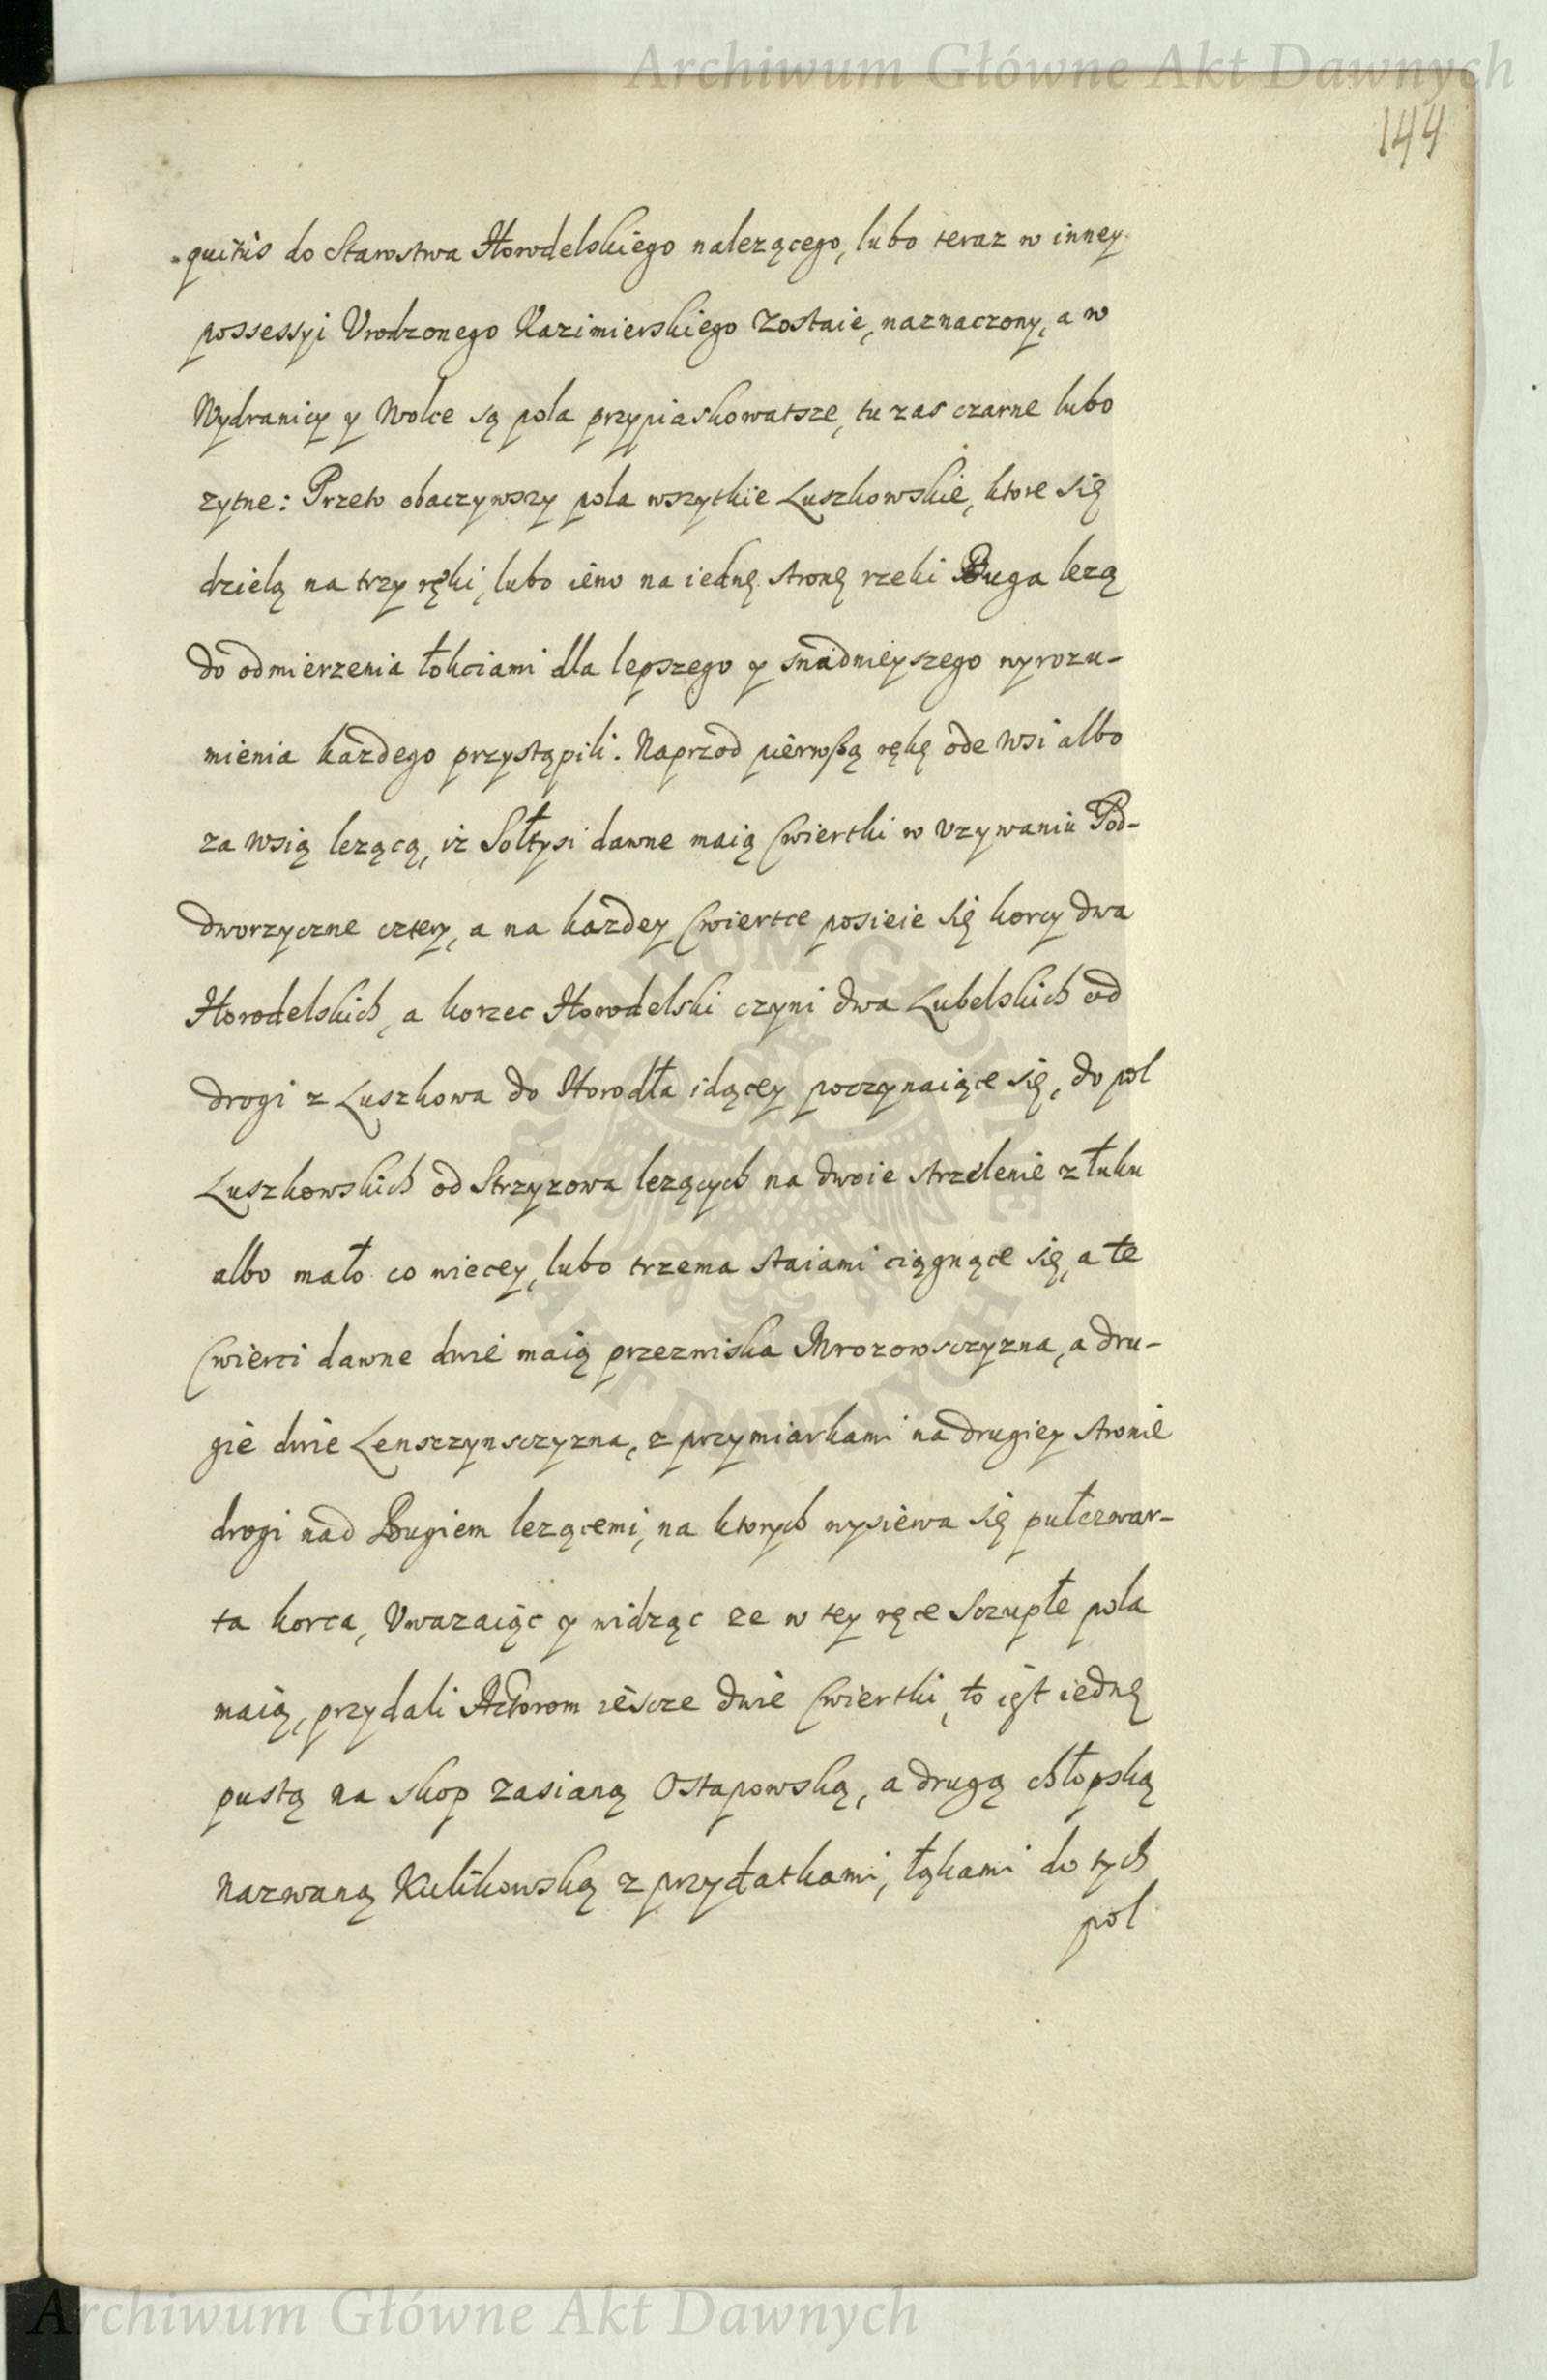 Archiwum Główne Akt Dawnych
144
quitus do Starostwa Horodelskiego nalezącego, lubo teraz w inney
possessyi Vrodzonego Kazimierskiego zostaie, naznaczony, a w
Wydranicy y Wolce są pola przypiaskowatsze, tu zas czarne lubo
zytne: Przeto obaczywszy pola wszytkie Luszkowskie, ktore się
dzielą na trzy ręki, lubo ieno na iednę stronę rzeki Buga lezą
do odmierzenia łokciami dla lepszego y snadnieyszego wyrozu-
mienia kazdego przystąpili. Naprzod pierwszą rękę ode wsi albo
za wsią lezącą, iz Sołtysi dawne maią Cwiertki w vzywaniu Pod-
dworzyczne cztery, a na kazdey Cwiertce posieie się korcy dwa
Horodelskich, a korzec Horodelski czyni dwa Lubelskich od
drogi z Luszkowa do Horodła idącey poczynaiące się, do pol
Luszkowskich od Strzyzowa lezących na dwoie strzelenie z łuku
albo mało co wiecey, lubo trzema staiami ciągnące się, a te
Cwierci dawne dwie maią przezwiska Mrozowsczyzna, a dru-
gie dwie Lensczynsczyzna, z przymiarkami na drugiey stronie
drogi nad Bugiem lezącemi, na ktorych wysiewa się pułczwar-
ta korca, Vwazaiąc y widząc ze w tey ręce Sczupłe pola
maią, przydali Actorom iescze dwie Cwiertki, to iest iednę
pustą na skop zasianą Ostapowską, a drugą chłopską
nazwaną Kulikowską z przydatkami, łąkami do tych
pol
ARCHIWUM GŁÓWNE AKT DAWNYCH
Archiwum Główne Akt Dawnych